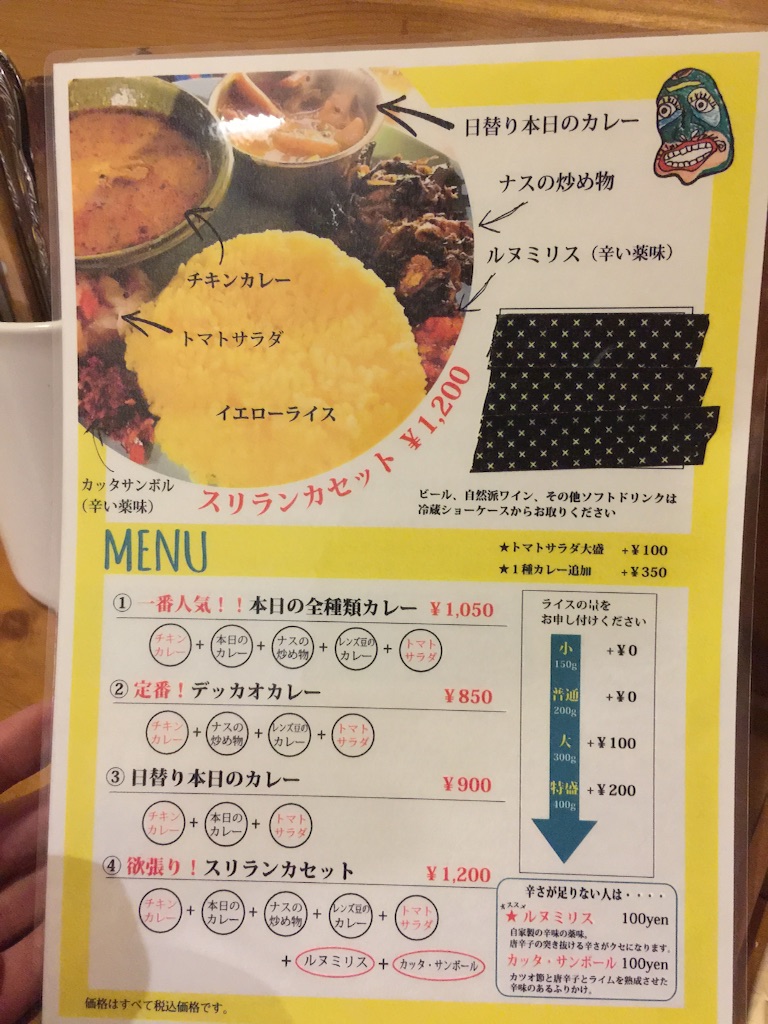 日替り本日のカレー
ナスの炒め物
ルヌミリス（辛い薬味）
チキンカレー
トマトサラダ
イエローライス
カッタサンボル
（辛い薬味）
スリランカセット ￥1,200
ビール、自然派ワイン、その他ソフトドリンクは
冷蔵ショーケースからお取りください
MENU
★トマトサラダ大盛 +￥100
★1種カレー追加 +￥350
① 一番人気！！本日の全種類カレー ￥1,050
チキンカレー + 本日のカレー + ナスの炒め物 + レンズ豆のカレー + トマトサラダ
② 定番！デッカオカレー ￥850
チキンカレー + ナスの炒め物 + レンズ豆のカレー + トマトサラダ
③ 日替り本日のカレー ￥900
チキンカレー + 本日のカレー + トマトサラダ
④ 欲張り！スリランカセット ￥1,200
チキンカレー + 本日のカレー + ナスの炒め物 + レンズ豆のカレー + トマトサラダ
+ ルヌミリス + カッタ・サンボール
ライスの量を
お申し付けください
小 +￥0
150g
普通 +￥0
200g
大 +￥100
300g
特盛 +￥200
400g
辛さが足りない人は・・・・
オススメ
★ ルヌミリス 100yen
自家製の辛味の薬味。
唐辛子の突き抜ける辛さがクセになります。
カッタ・サンボール 100yen
カツオ節と唐辛子とライムを熟成させた
辛味のあるふりかけ。
価格はすべて税込価格です。